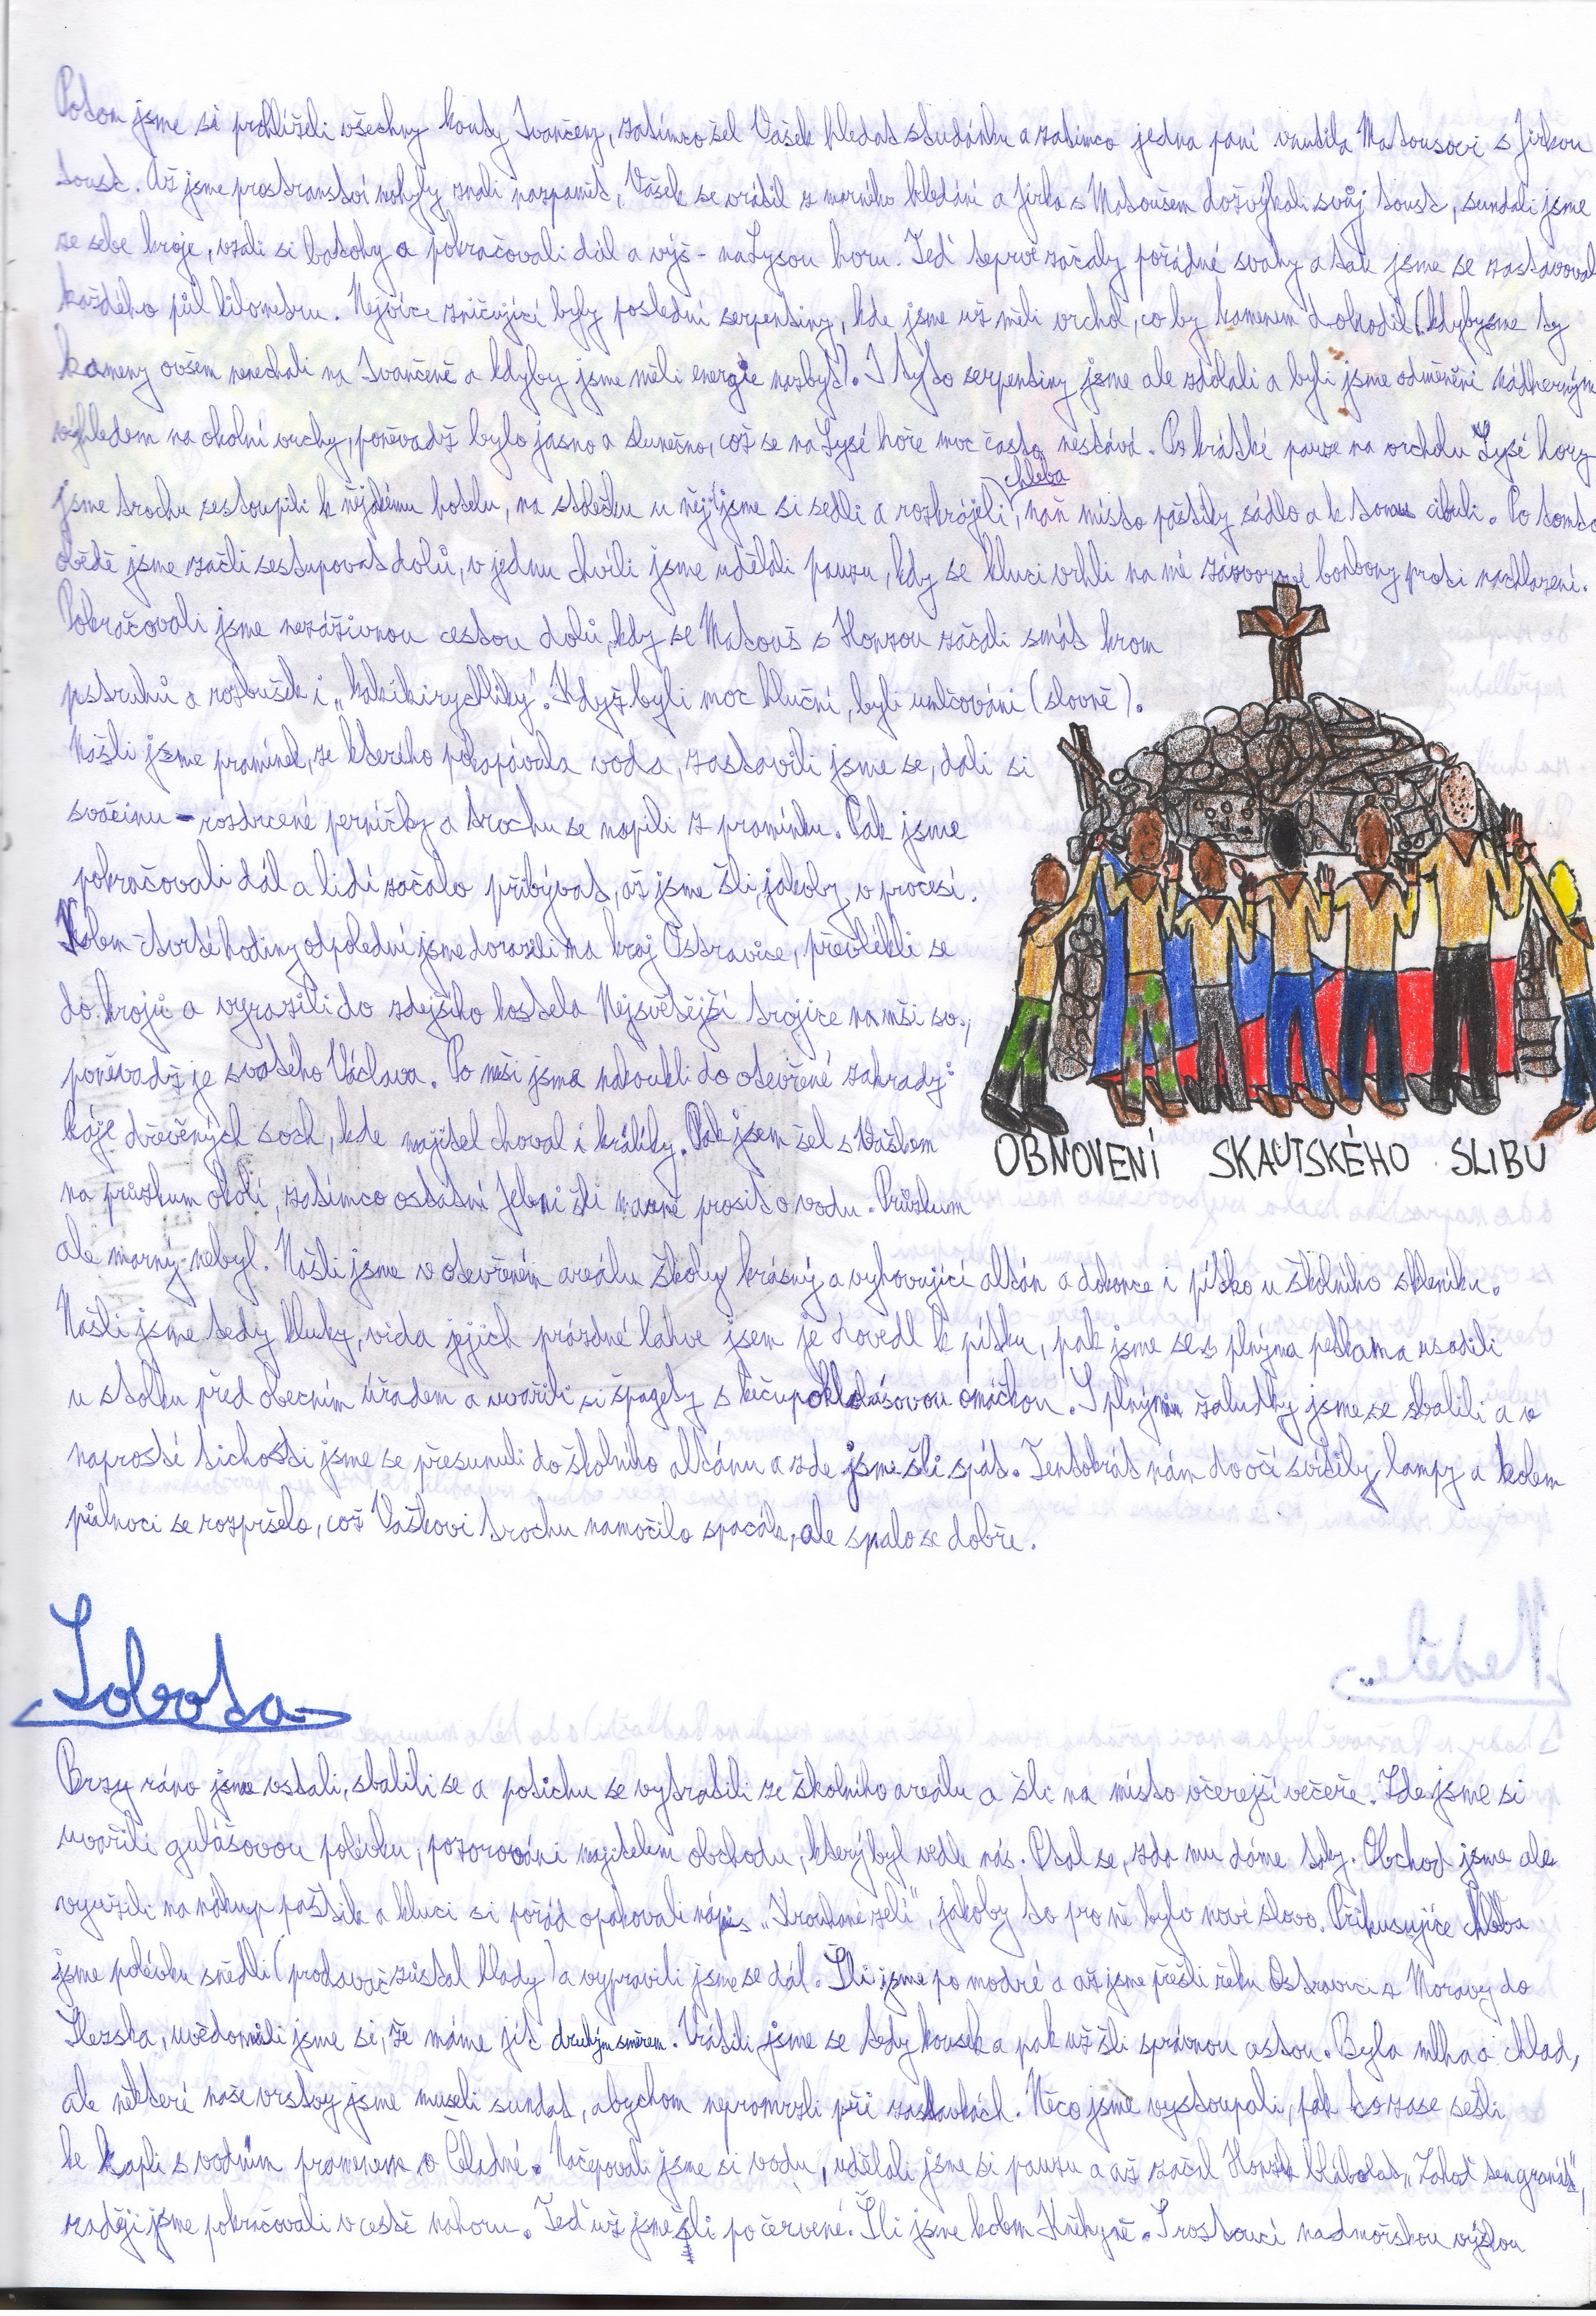 Potom jsme si prohlíželi všechny kouty Ivančeny, zatímco šel Vašek hledat studánku a zatímco jedna paní vnutila Matoušovi s Jirkou
toust. Až jsme prostranství mohyly znali nazpamět, Vašek se vrátil z marného hledání a Jirka s Matoušem dožvýkali svůj toust, sundali jsme
ze sebe kroje, vzali si batohy a pokračovali dál a výš - na Lysou horu. Teď teprve začaly pořádné svahy a tak jsme se zastavoval
každého půl kilometru. Nejvíce zničující byly poslední serpentiny, kde jsme už měli vrchol, co by kamenem dohodil (kdybysme ty
kameny ovšem nenechali na Ivančeně a kdyby jsme měli energie nazbyt). I tyto serpentiny jsme ale zdolali a byli jsme odměněni nádherným
výhledem na okolní vrchy, poněvadž bylo jasno a slunečno, což se na Lysé hoře moc často nestává. Po krátké pauze na vrcholu Lysé hory
jsme trochu sestoupili k nějakému hotelu, na stolečku u něj jsme si sedli a rozkrájeli chleba, naň místo paštiky sádlo a k tomu cibuli. Po tomto
obědě jsme začli sestupovat dolů, v jednu chvíli jsme udělali pauzu, kdy se kluci vrhli na mé zázvorové bonbony proti nachlazení.
Pokračovali jsme nezáživnou cestou dolů, kdy se Matouš s Honzou začali smát krom
pstruhů a rozbušek i „kakikirychliky". Když byli moc hluční, byli umlčováni (slovně).
Našli jsme pramínek, ze kterého pokapávala voda, zastavili jsme se, dali si
svačinu - rozdrcené perníčky a trochu se napili z pramínku. Pak jsme
pokračovali dál a lidí začalo přibývat, až jsme šli, jakoby v procesí.
Kolem čtvrté hodiny odpolední jsme dorazili na kraj Ostravice, převlékli se
do krojů a vyrazili do zdejšího kostela Nejsvětější trojice na mši sv.,
poněvadž je svatého Václava. Po mši jsme nakoukli do otevřené zahrady
ráje dřevěných soch, kde majitel choval i králíky. Pak jsem šel s Vaškem
na průzkum okolí, zatímco ostatní šli marně prosit o vodu. Průzkum
ale marný nebyl. Našli jsme v otevřeném areálu školy krásný a vyhovující altán a dokonce i pítko u školního skleníku.
Našli jsme tedy kluky, vida jejich prázdné lahve jsem je dovedl k pítku, pak jsme se s plnýma petkama usadili
u stolku před obecním úřadem a uvařili si špagety s kečupoklobásovou omáčkou. S plnými žaludky jsme se sbalili a v
naprosté tichosti jsme se přesunuli do školního altánu a zde jsme šli spát. Tentokrát nám do očí svítily lampy a kolem
půlnoci se rozpršelo, což Vaškovi trochu namočilo spacák, ale spalo se dobře.
OBNOVENÍ SKAUTSKÉHO SLIBU
Sobota
Brzy ráno jsme vstali, sbalili se a potichu se vytratili ze školního areálu a šli na místo včerejší večeře. Zde jsme si
uvařili gulášovou polévku, pozorováni majitelem obchodu, který byl vedle nás. Ptal se, zda mu dáme taky. Obchod jsme ale
využili na nákup paštik a kluci si pořád opakovali nápis „Krouhané zelí", jakoby to pro ně bylo nové slovo. Přikusujíce chleba
jsme polévku snědli (prodavač zůstal hlady) a vypravili jsme se dál. Šli jsme po modré a až jsme přešli řeku Ostravici z Moravy do
Slezska, uvědomili jsme si, že máme jít druhým směrem. Vrátili jsme se tedy kousek a pak už šli správnou cestou. Byla mlha a chlad,
ale některé naše vrstvy jsme museli sundat, abychom nepromrzli při zastávkách. Něco jsme vystoupali, pak to zase sešli
ke kapli s vodním pramenem v Čeladné. Načepovali jsme si vodu, udělali jsme si pauzu a až začal Honza blábolat „Zahoď ten granát",
raději jsme pokračovali v cestě nahoru. Teď už jsme šli po červené. Šli jsme kolem Kněhyně. S rostoucí nadmořskou výškou